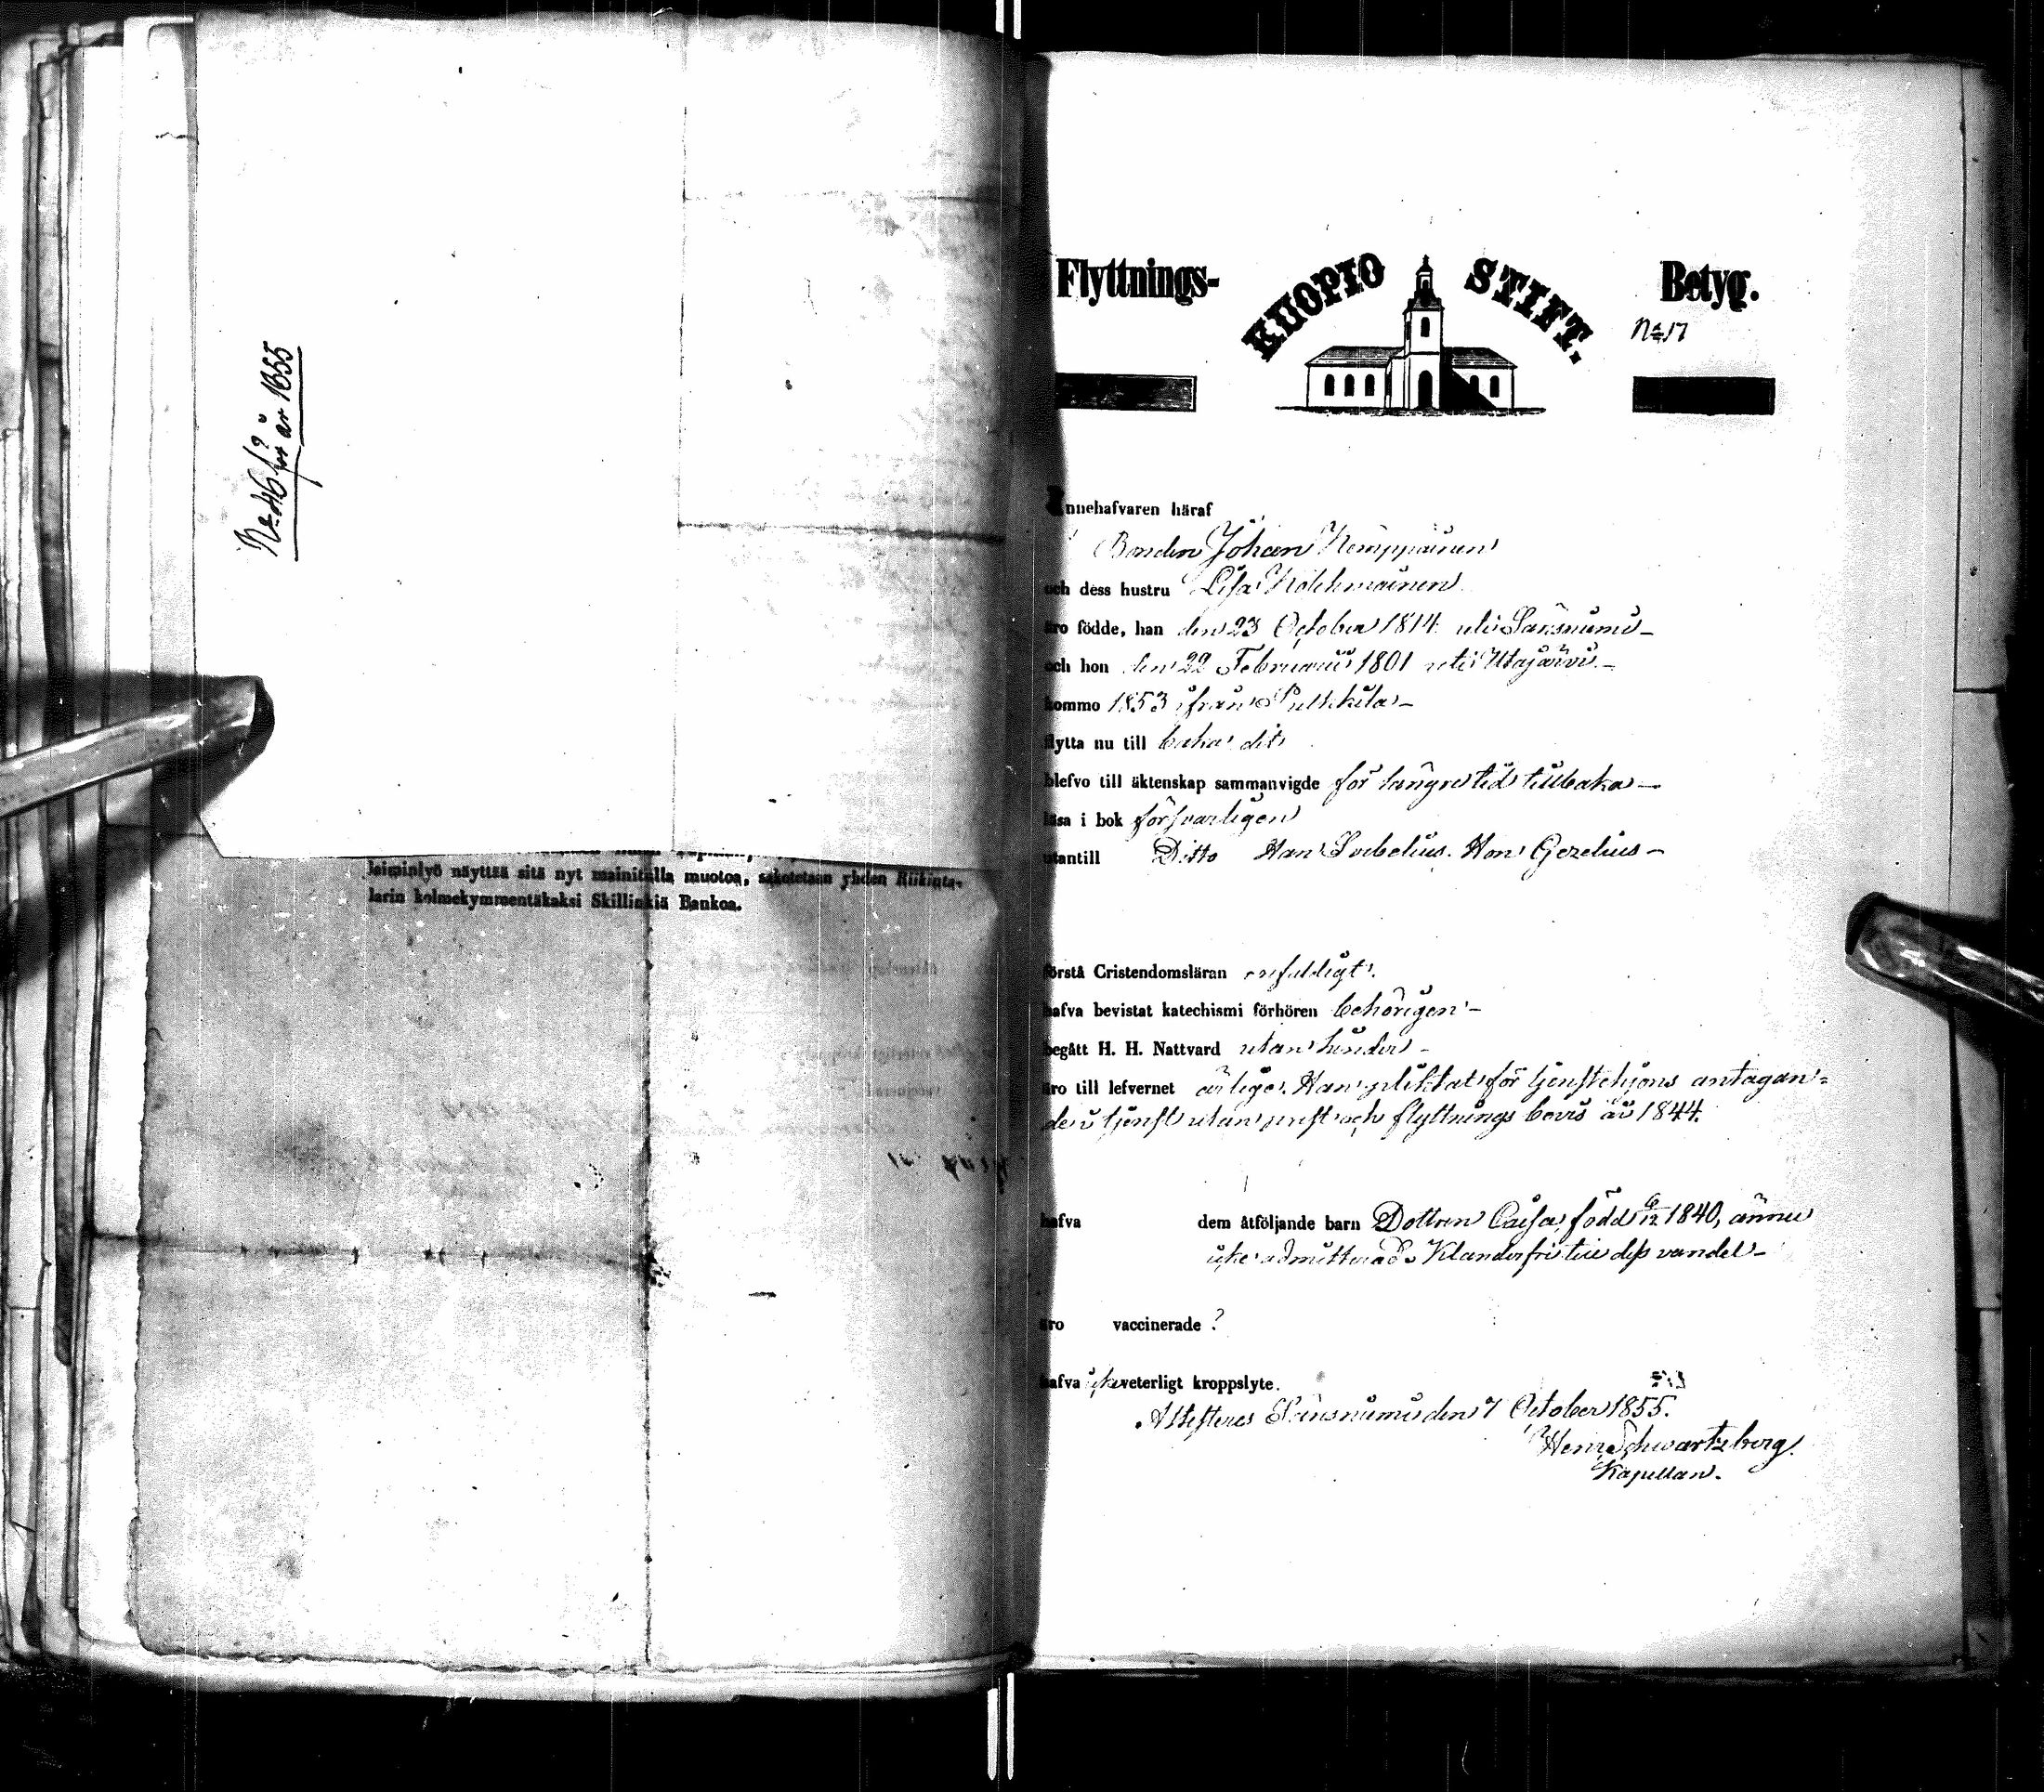 No 46 för år 1855
laiminlyö näyttää sitä nyt mainitulla muotoa, sakotetaan yhden Riikinta-
larin kolmekymmentäkaksi Skillinkiä Bankoa.
Flyttnings- KUOPIO STIFT. Betyg.
No 17
Innehafvaren häraf
Bonden Johan Kemppainen
och dess hustru Lisa Kolehmainen
äro födde, han den 23 October 1814 uti Säräsniemi
och hon den 22 Februarii 1801 uti Utajärvi
kommo 1853 ifrån Pulkkila
flytta nu till baka dit
blefvo till äktenskap sammanvigde för längre tid tillbaka
läsa i bok försvarligen
utantill Ditto Han Svebelius. Hon Gezelius
förstå Cristendomsläran enfaldigt.
hafva bevistat katechismi förhören behörigen
begått H. H. Nattvard utan hinder
äro till lefvernet ärlige. Han pliktat för tjenstehjons antagan=
de i tjenst utan prest och flyttnings bevis år 1844.
hafva dem åtföljande barn Dottren Caisa, född 6/12 1840, ännu
icke admitterad. Klanderfri till dess vandel
äro vaccinerade ?
hafva icke veterligt kroppslyte.
Attesteras den 7 October 1855.
Henr Schwartzberg.
Kapellan.